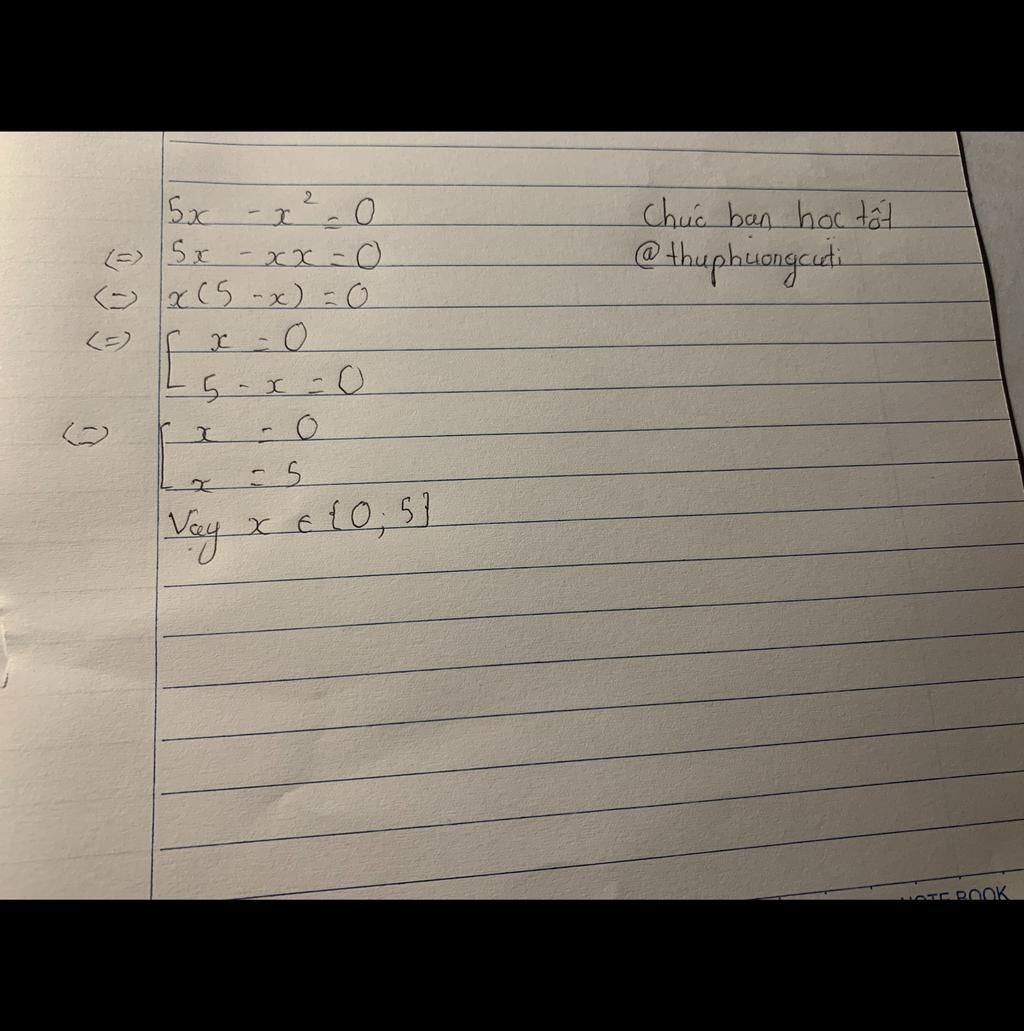 5x - x² = 0
<=> 5x - xx = 0
<=> x(5 - x) = 0
<=> [ x = 0
5 - x = 0
<=> [ x = 0
x = 5
Vậy x ∈ {0; 5}
Chúc bạn học tốt
@thuphuongcuti
NOTE BOOK